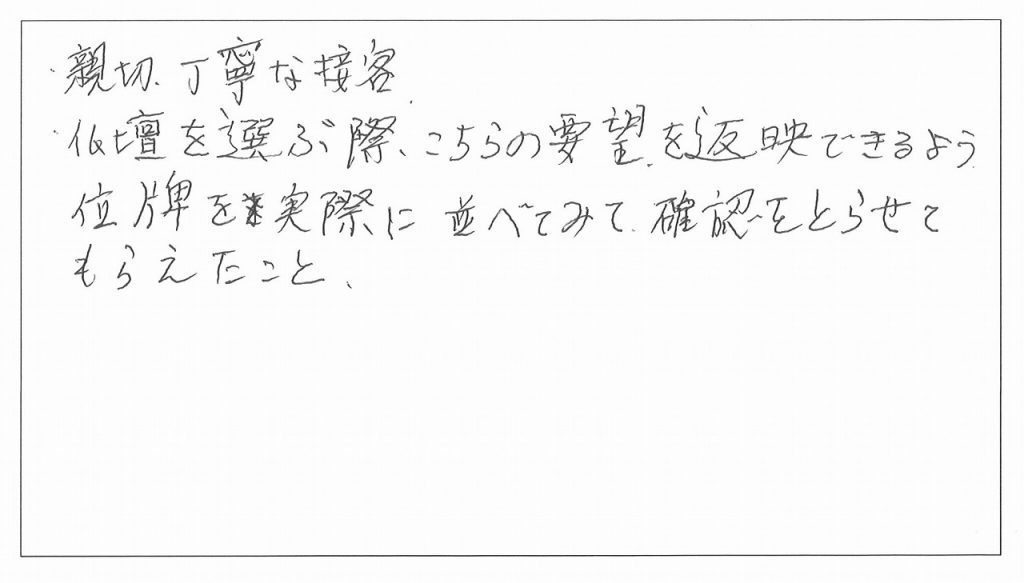 ・親切、丁寧な接客。
・仏壇を選ぶ際、こちらの要望を返映できるよう
位牌を実際に並べてみて、確認をとらせて
もらえたこと、